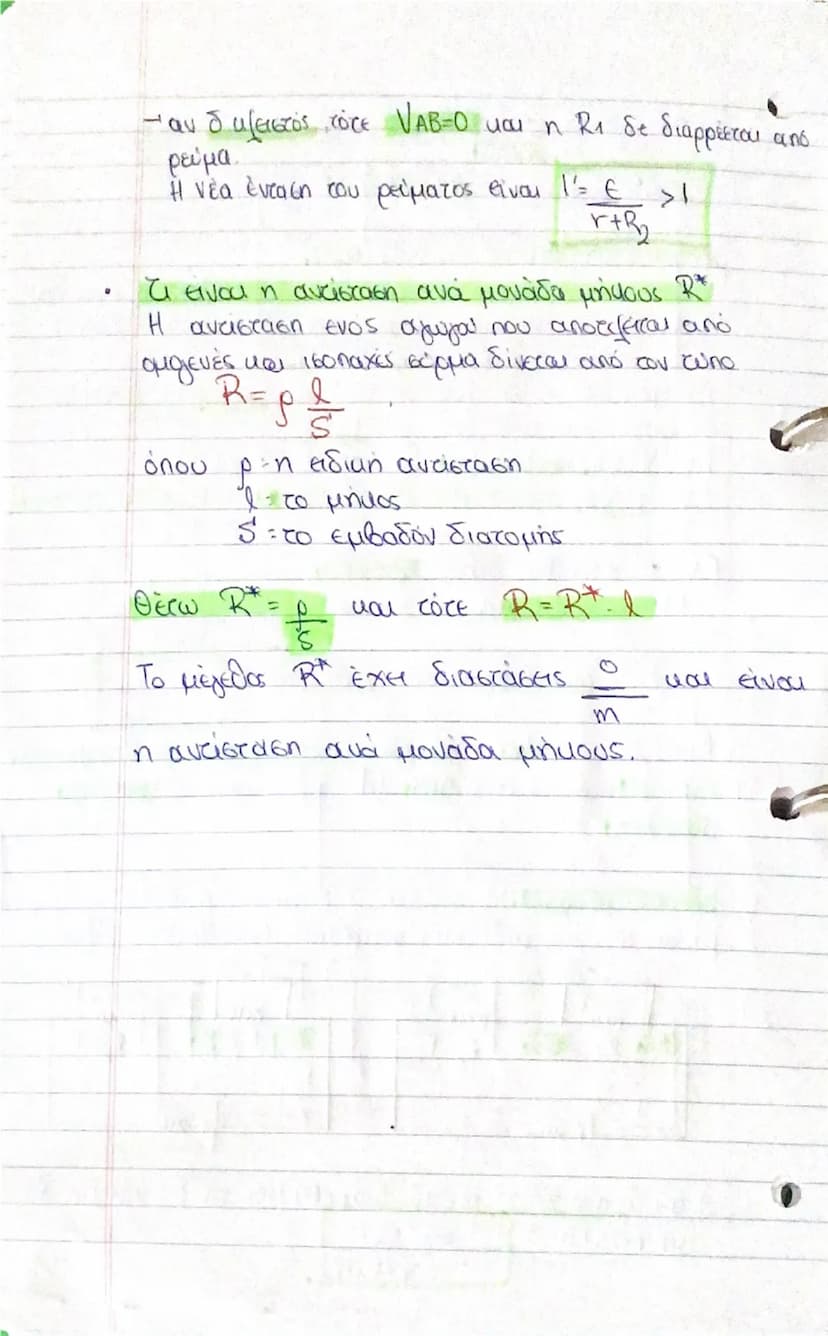 → αν δ κλειστός, τότε VAB=0 και η R1 δε διαρρέεται από
ρεύμα.
Η νέα ένταση του ρεύματος είναι I'= ε/(r+R2) > I
• Τι είναι η αντίσταση ανά μονάδα μήκους R*
Η αντίσταση ενός αγωγού που αποτελείται από
ομογενές και ισοπαχές σύρμα δίνεται από τον τύπο
R=ρ l/S
όπου ρ=η ειδική αντίσταση
l=το μήκος
S=το εμβαδόν διατομής
Θέτω R*= ρ/S και τότε R=R*·l
Το μέγεθος R* έχει διαστάσεις Ω/m και είναι
η αντίσταση ανά μονάδα μήκους.